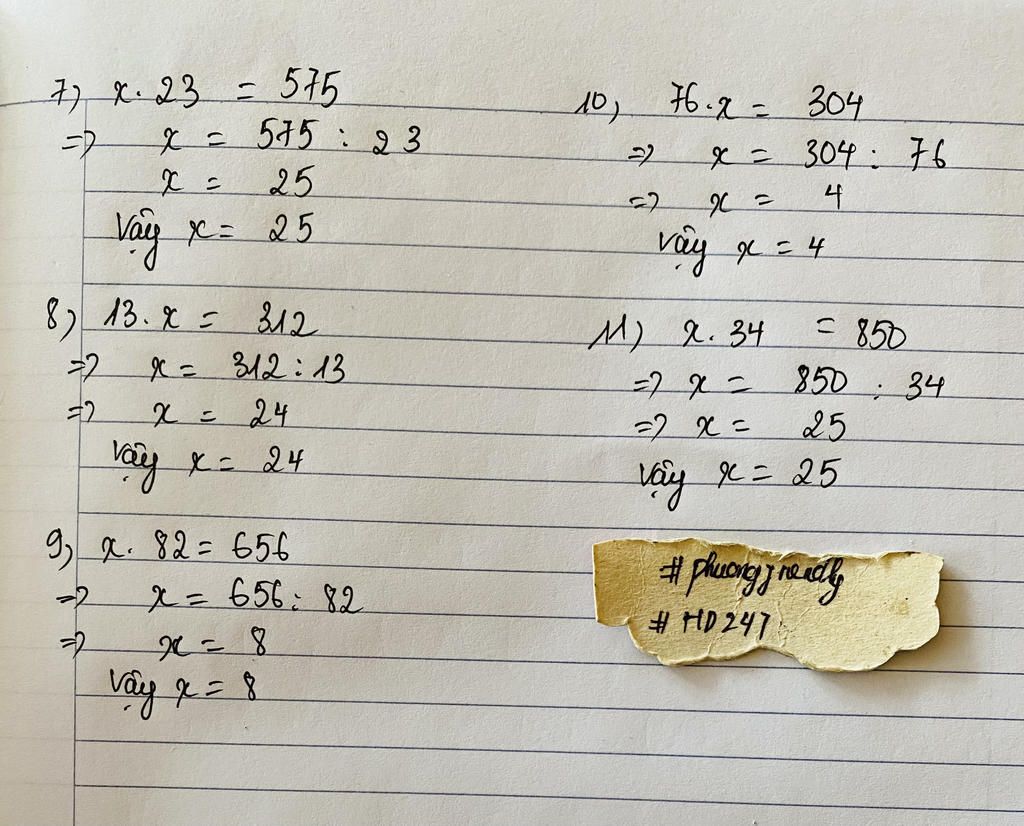 7) x. 23 = 575
=> x = 575 : 23
x = 25
Vậy x = 25
8) 13. x = 312
=> x = 312 : 13
=> x = 24
Vậy x = 24
9) x. 82 = 656
=> x = 656 : 82
=> x = 8
Vậy x = 8
10) 76. x = 304
=> x = 304 : 76
=> x = 4
Vậy x = 4
11) x. 34 = 850
=> x = 850 : 34
=> x = 25
Vậy x = 25
# HD 247